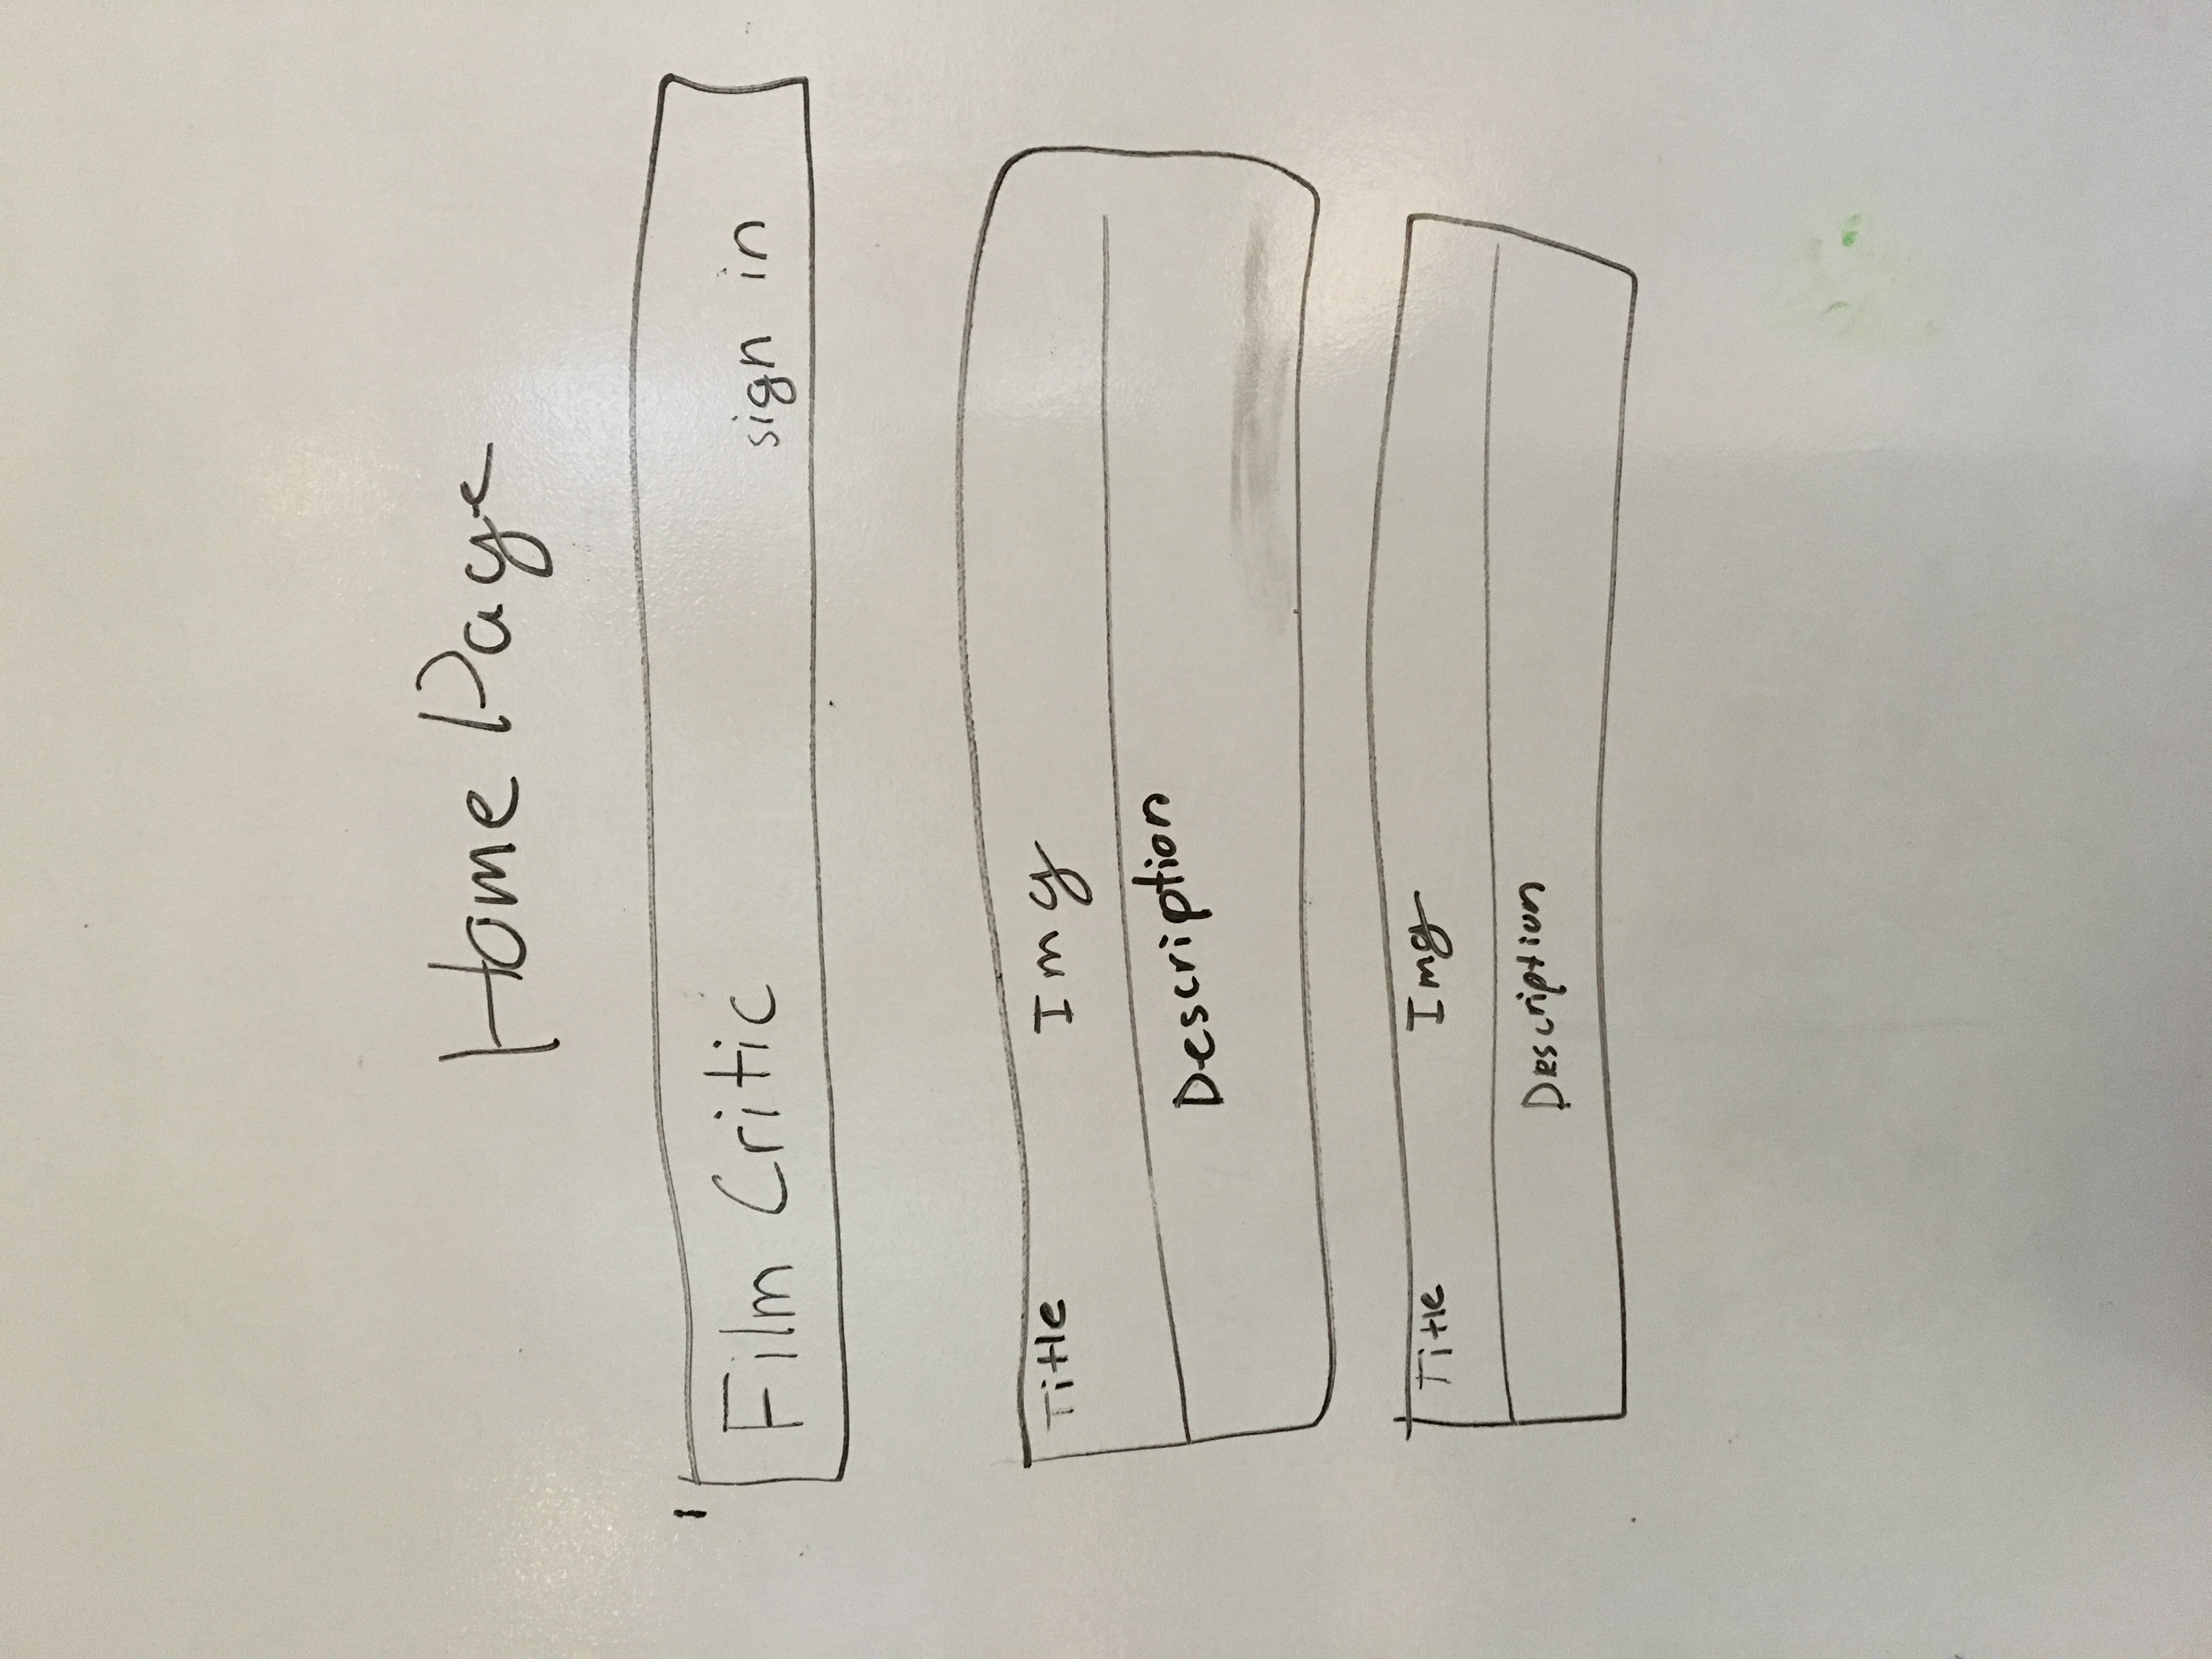 Home Page
Film Critic sign in
Title Img
Description
Title Img
Description